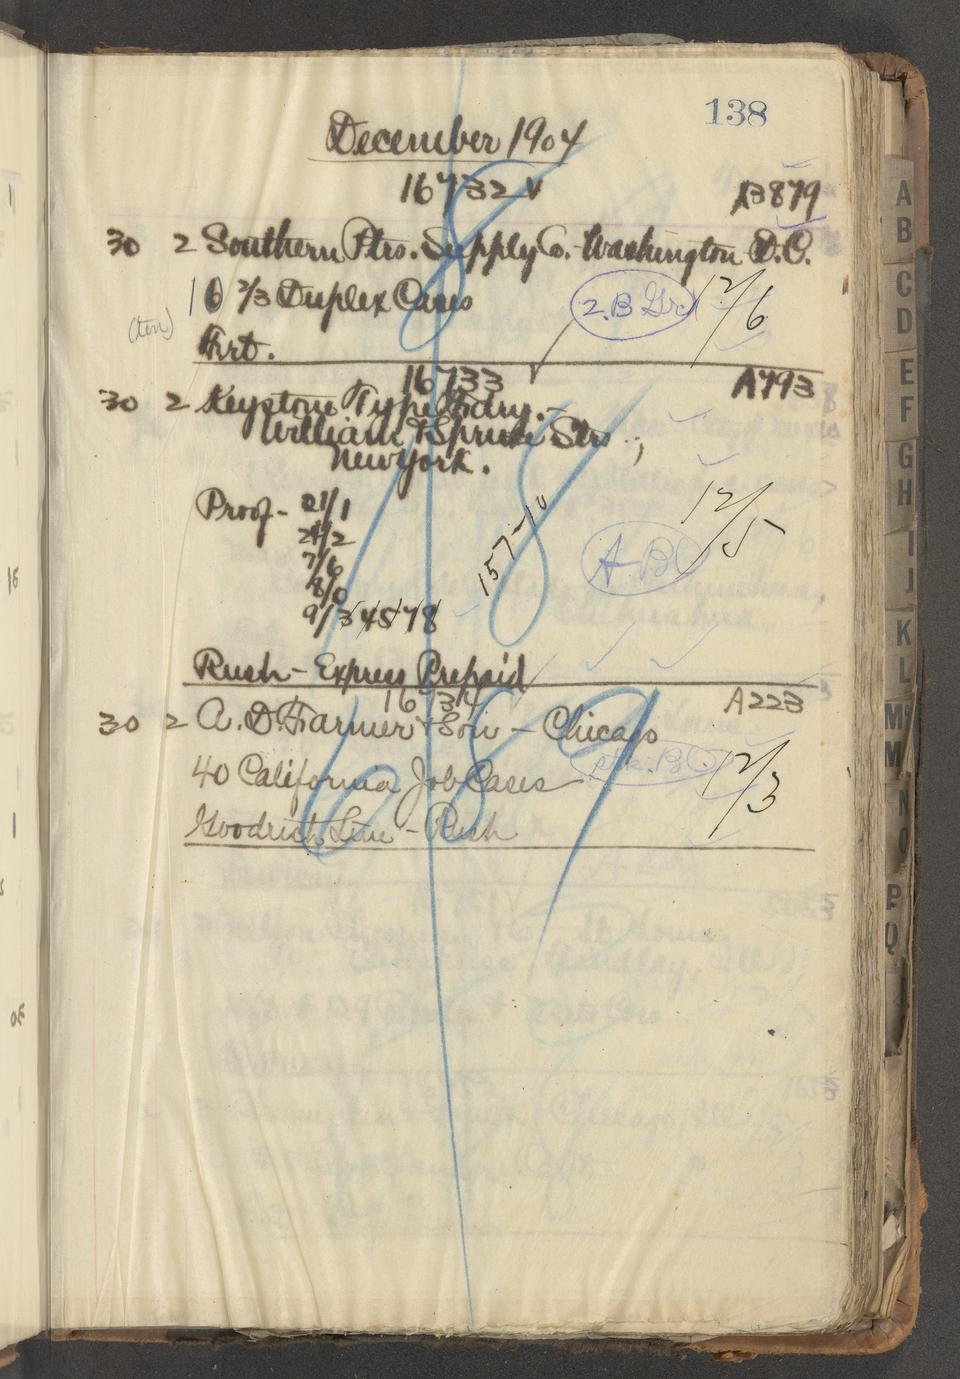 138
December 1904
16732 V
A3879
30 2 Southern Ptrs. Supply Co. Washington D.C.
10 2/3 Duplex Cases
2.B Gr.
12/6
(ten)
Frt.
16733
A793
30 2 Keystone Type Fdry. -
William & Spruce Strs.,
New York.
Proof - 21/1
24/2
7/6
8/0
9/3 4 5 7 8
157-10
A-B
12/5
Rush - Express Prepaid
16734
A223
30 2 A. D. Farmer & Son - Chicago
40 California Job Cases
12/3
Goodrich Line - Rush
A
B
C
D
E
F
G
H
I
J
K
L
M
M
N
O
P
Q